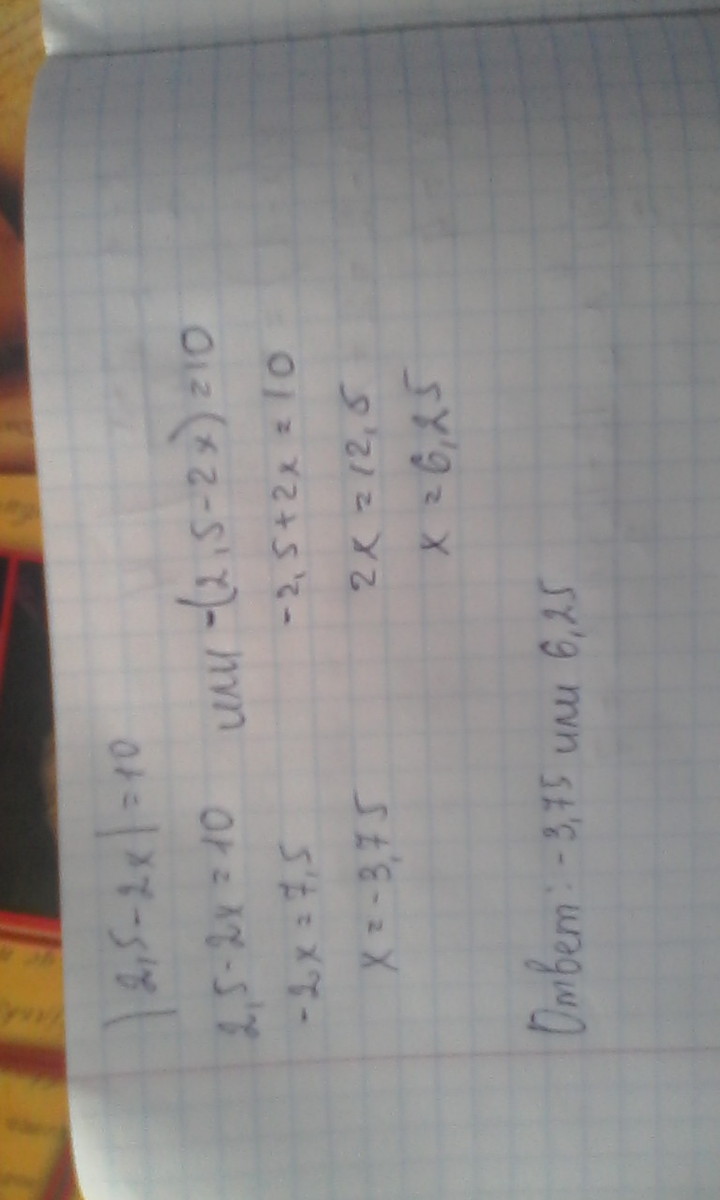 |2,5-2x|=10
2,5-2x=10 или -(2,5-2x)=10
-2x=7,5 -2,5+2x=10
x=-3,75 2x=12,5
x=6,25
Ответ: -3,75 или 6,25